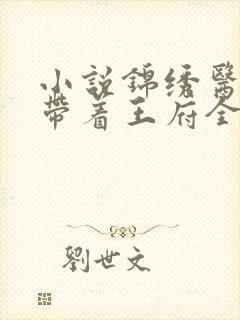 小說錦绣醫
帶着王府全
劉世文